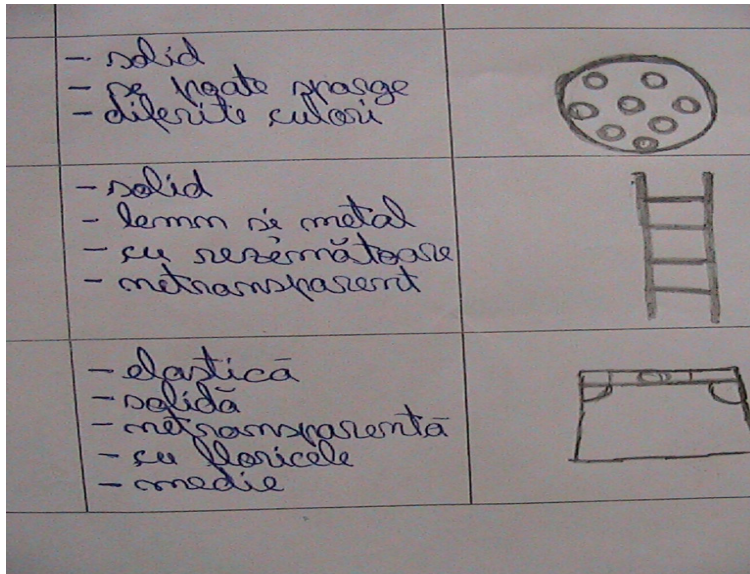 - solid
- se poate sparge
- diferite culori
- solid
- lemn și metal
- cu rezemătoare
- netransparent
- elastică
- solidă
- netransparentă
- cu floricele
- medie